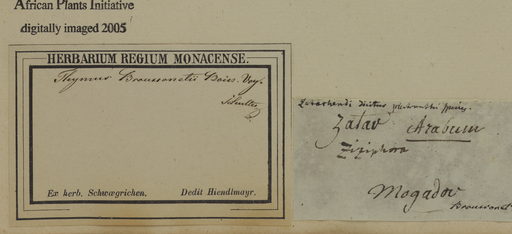 African Plants Initiative
digitally imaged 2005
HERBARIUM REGIUM MONACENSE.
Thymus Broussonetii Boiss. Voy.
Ex herb. Schwægrichen. Dedit Hiendlmayr.
dictus
Zatar Arabum
Ziziphora
Mogador
Broussonet